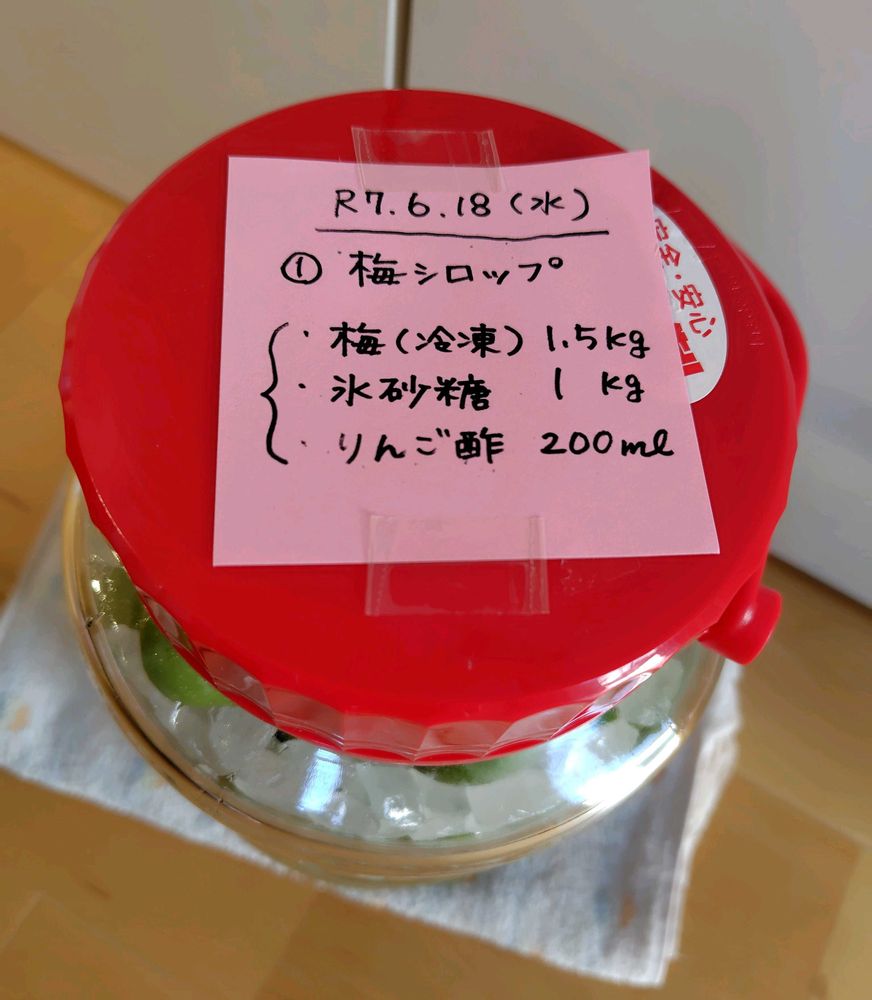 R7.6.18(水)
① 梅シロップ
・梅(冷凍) 1.5kg
・氷砂糖 1 kg
・りんご酢 200ml
安全・安心